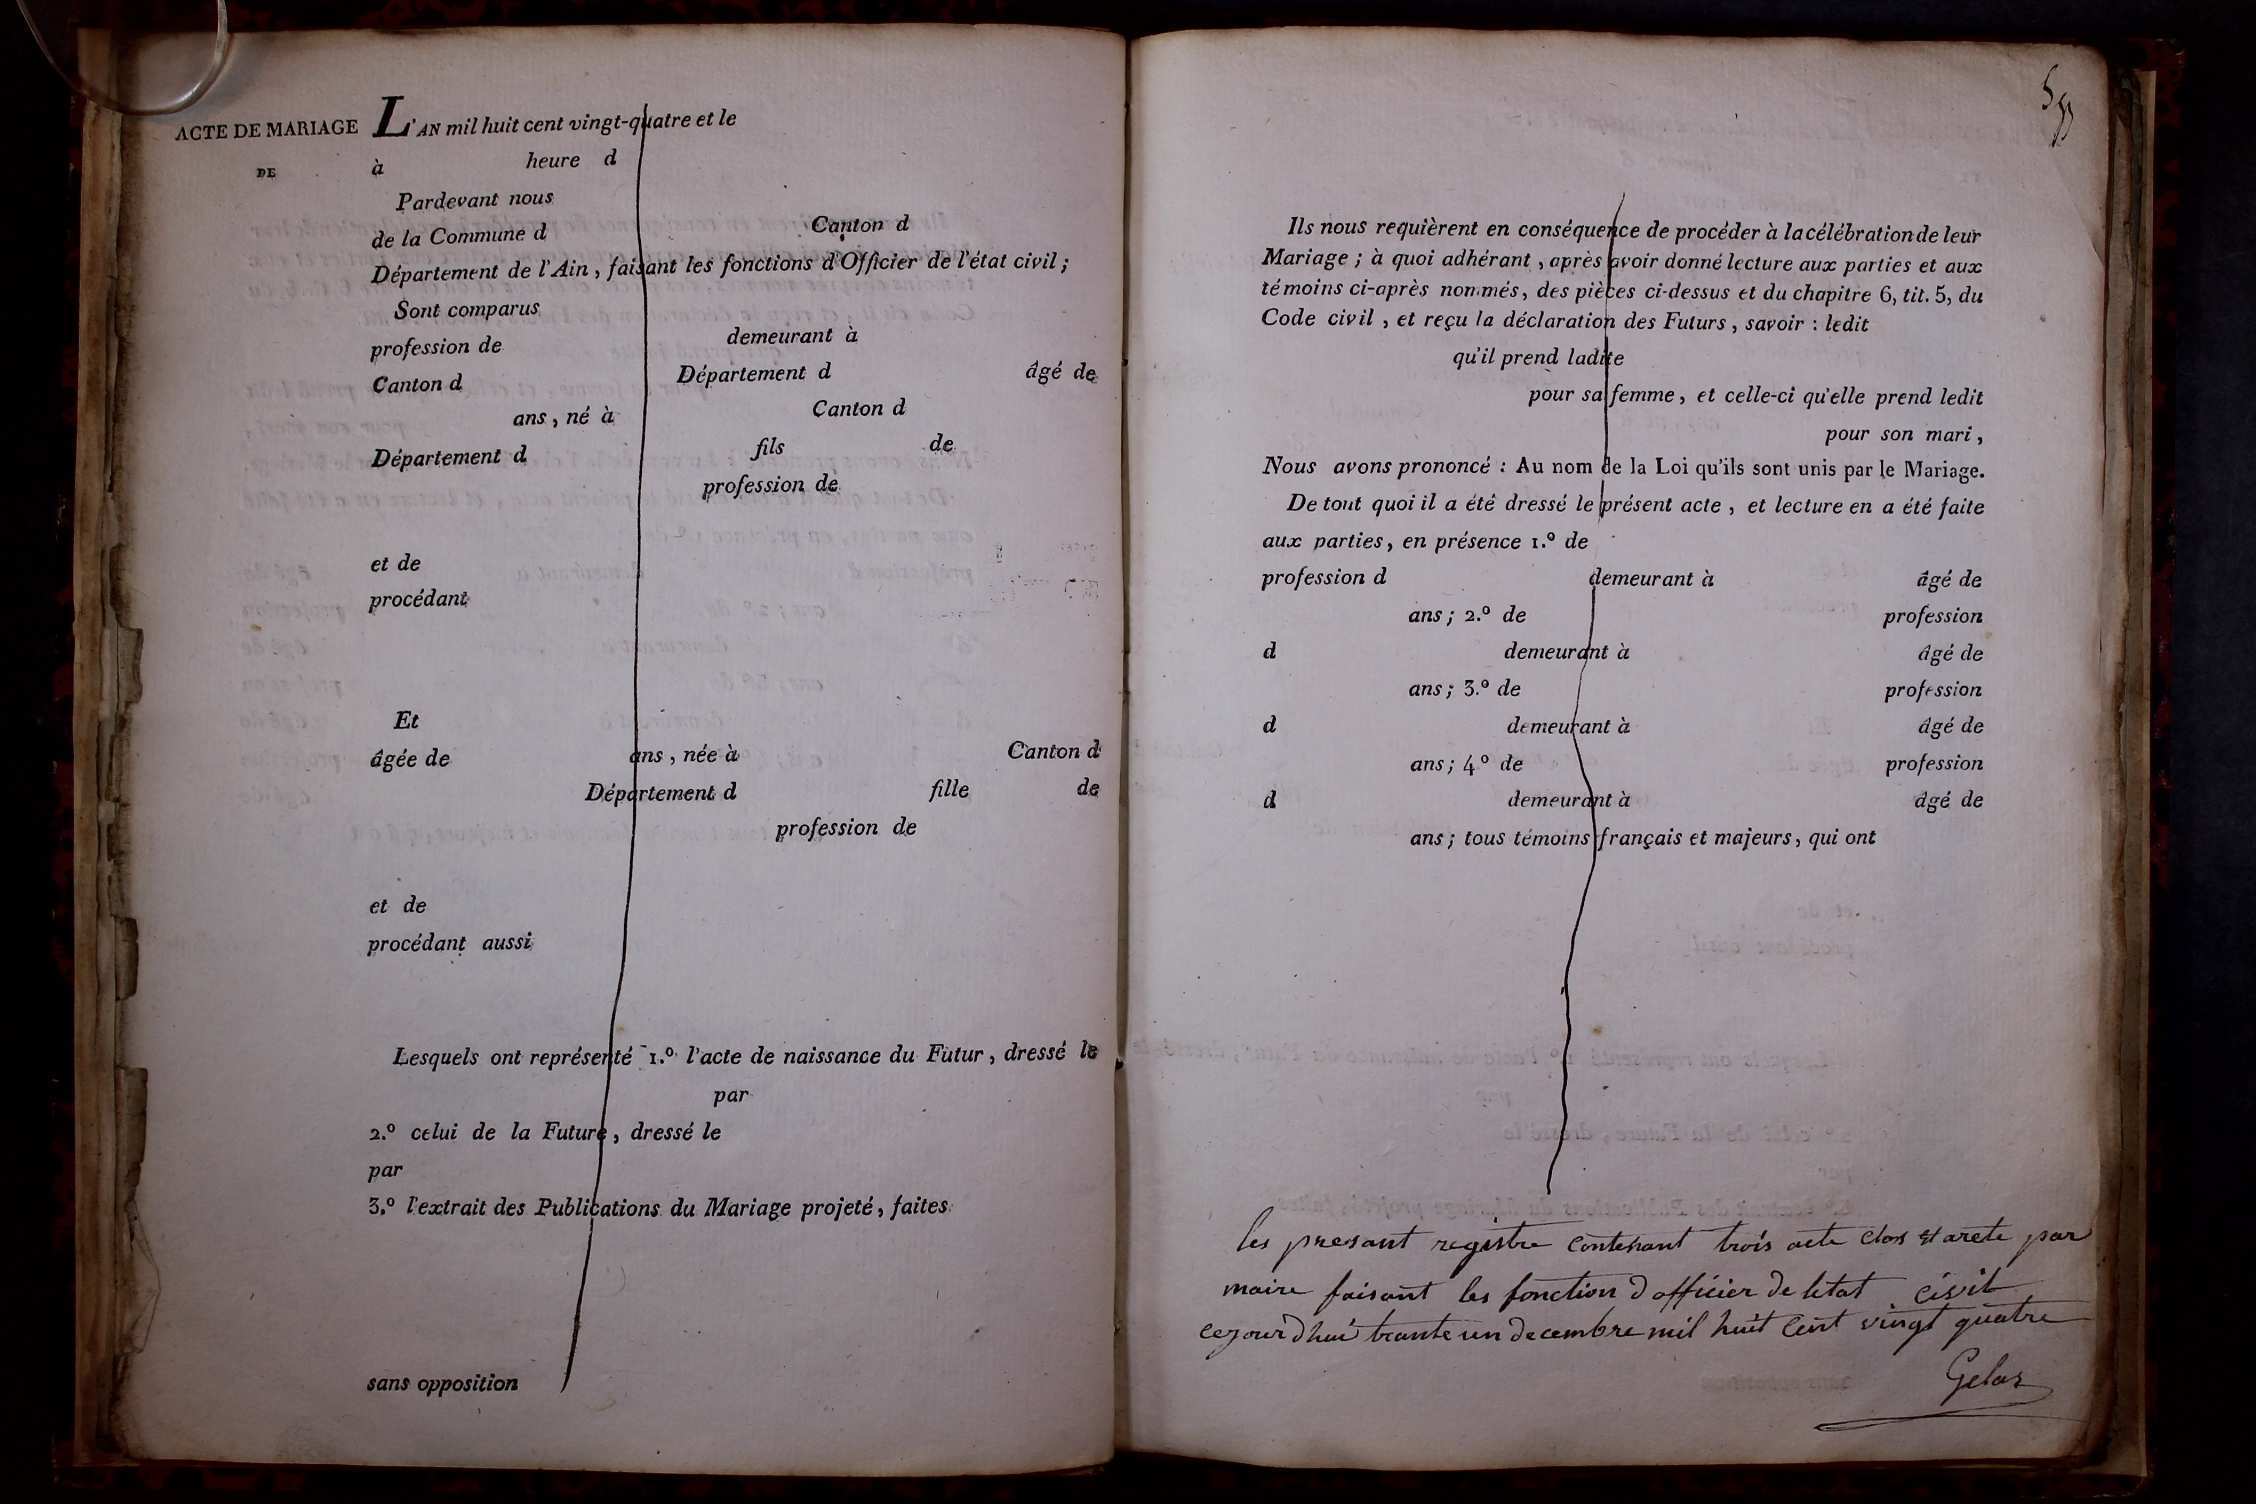 ACTE DE MARIAGE
DE
L'AN mil huit cent vingt-quatre et le
à heure d
Pardevant nous
de la Commune d Canton d
Département de l'Ain, faisant les fonctions d'Officier de l'état civil;
Sont comparus
profession de demeurant à
Canton d Département d âgé de
ans, né à Canton d
Département d fils de
profession de
et de
procédant
Et
âgée de ans, née à Canton d
Département d fille de
profession de
et de
procédant aussi
Lesquels ont représenté 1.º l'acte de naissance du Futur, dressé le
par
2.º celui de la Future, dressé le
par
3.º l'extrait des Publications du Mariage projeté, faites
sans opposition
Ils nous requièrent en conséquence de procéder à la célébration de leur
Mariage; à quoi adhérant, après avoir donné lecture aux parties et aux
témoins ci-après nommés, des pièces ci-dessus et du chapitre 6, tit. 5, du
Code civil, et reçu la déclaration des Futurs, savoir: ledit
qu'il prend ladite
pour sa femme, et celle-ci qu'elle prend ledit
pour son mari,
Nous avons prononcé: Au nom de la Loi qu'ils sont unis par le Mariage.
De tout quoi il a été dressé le présent acte, et lecture en a été faite
aux parties, en présence 1.º de
profession d demeurant à âgé de
ans; 2.º de profession
d demeurant à âgé de
ans; 3.º de profession
d demeurant à âgé de
ans; 4º de profession
d demeurant à âgé de
ans; tous témoins français et majeurs, qui ont
les presant registre contenant trois acte clos et arete par
maire faisant les fonction d officier de letat civil
cejour dhui trante un decembre mil huit cent vingt quatre
Gelas